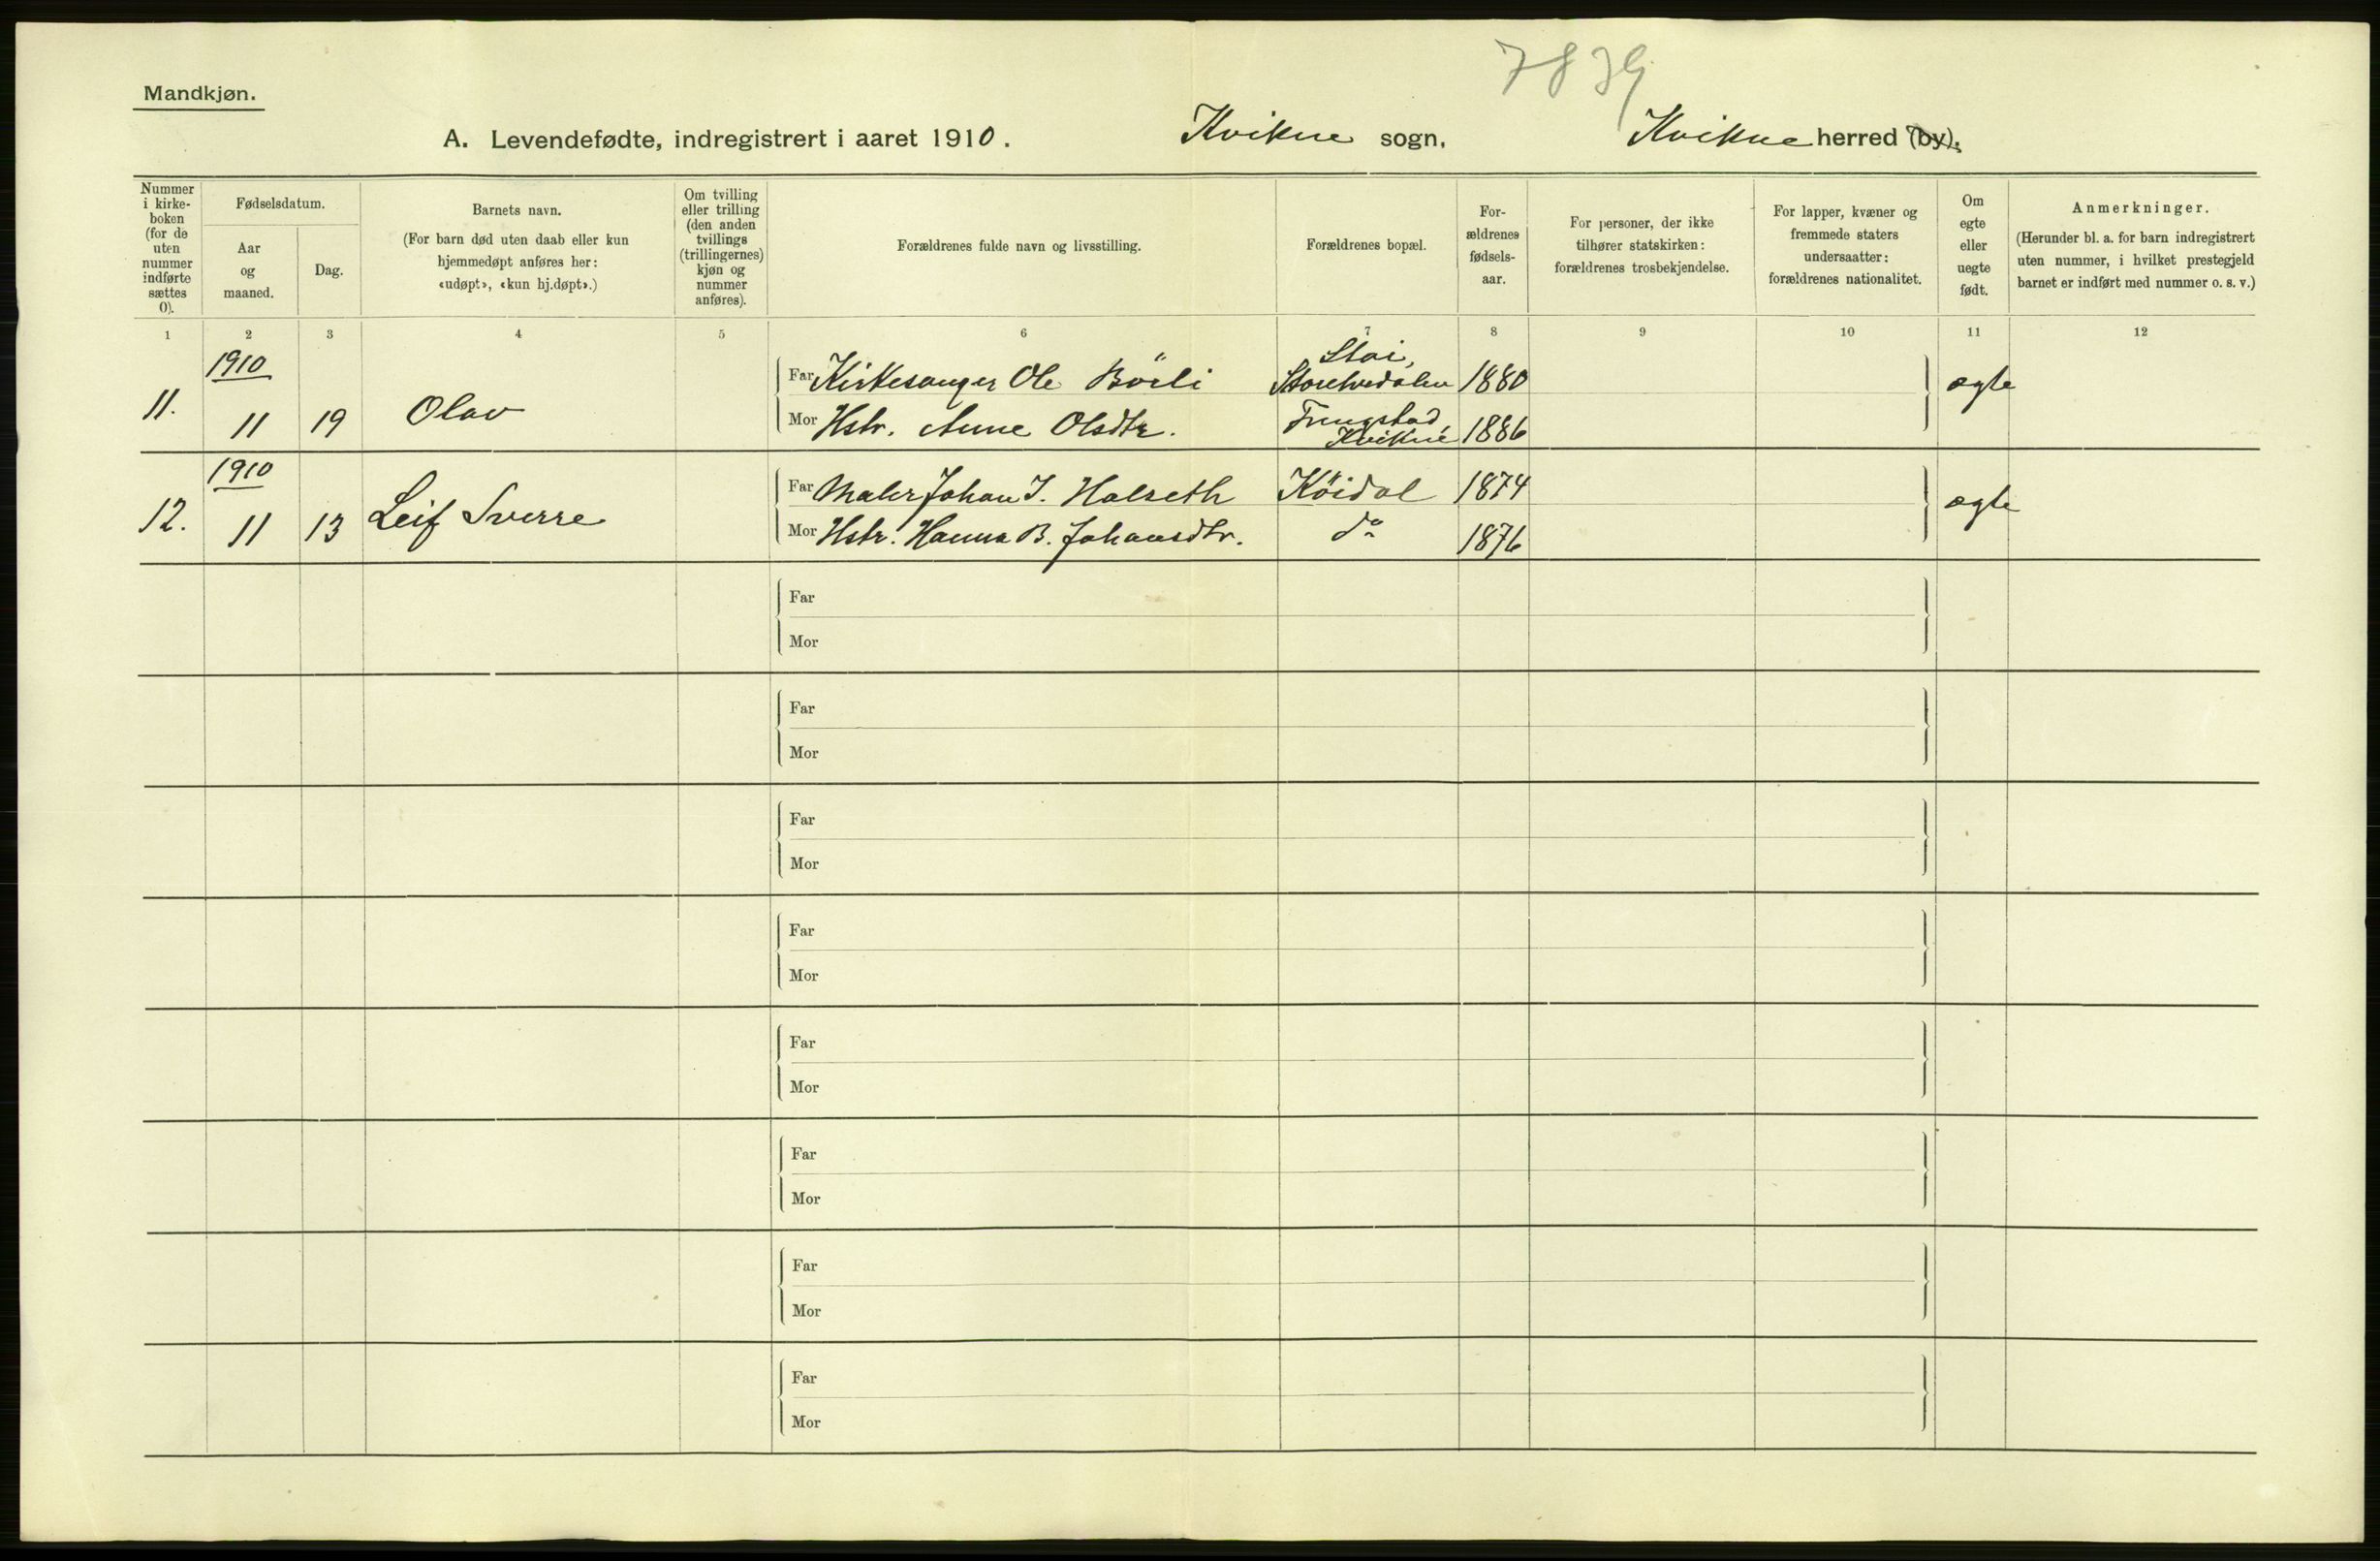 7839
Mandkjøn.
A. Levendefødte, indregistrert i aaret 1910. Kvikne sogn, Kvikne herred (by).
Nummer i kirke-boken (for de uten nummer indførte sættes 0).
Fødselsdatum.
Aar og maaned.
Dag.
Barnets navn.
(For barn død uten daab eller kun hjemmedøpt anføres her: «udøpt», «kun hj.døpt».)
Om tvilling eller trilling (den anden tvillings (trillingernes) kjøn og nummer anføres).
Forældrenes fulde navn og livsstilling.
Forældrenes bopæl.
For-ældrenes fødsels-aar.
For personer, der ikke tilhører statskirken: forældrenes trosbekjendelse.
For lapper, kvæner og fremmede staters undersaatter: forældrenes nationalitet.
Om egte eller uegte født.
Anmerkninger.
(Herunder bl. a. for barn indregistrert uten nummer, i hvilket prestegjeld barnet er indført med nummer o. s. v.)
1 2 3 4 5 6 7 8 9 10 11 12
11. 1910 11 19 Olav
Far Kirkesanger Ole Börli Stai, Storelvedalen 1880 egte
Mor Hstr. Anne Olsdtr. Kvikne 1886
12. 1910 11 13 Leif Sverre
Far Maler Johan J. Halseth Köidal 1874 egte
Mor Hstr. Hanna B. Johansdtr. do 1876
Far
Mor
Far
Mor
Far
Mor
Far
Mor
Far
Mor
Far
Mor
Far
Mor
Far
Mor